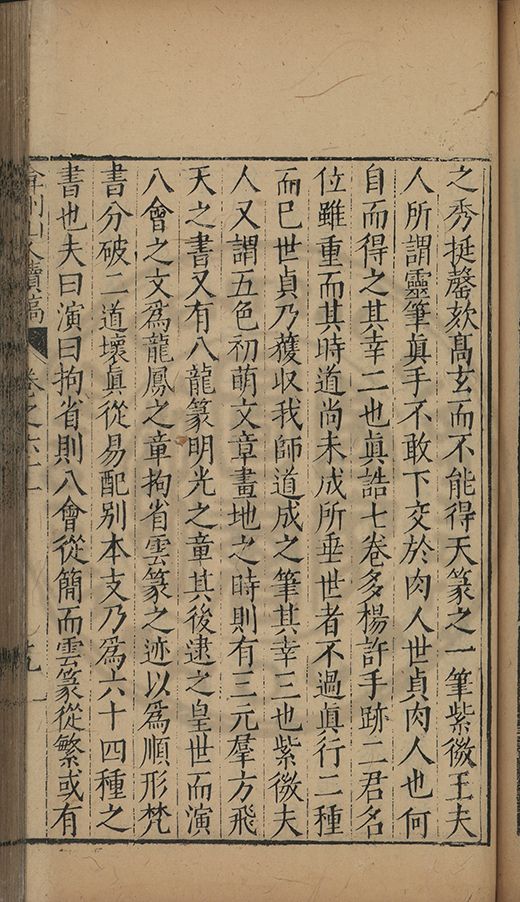 之秀挺罄欬髙玄而不能得天篆之一筆紫微王夫
人所謂靈筆眞手不敢下交於肉人世貞肉人也何
自而得之其幸二也眞誥七卷多楊許手跡二君名
位雖重而其時道尚未成所垂世者不過眞行二種
而已世貞乃獲収我師道成之筆其幸三也紫微夫
人又謂五色初萌文章畫地之時則有三元羣方飛
天之書又有八龍篆明光之童其後逮之皇世而演
八會之文爲龍鳳之童拘省雲篆之迹以爲順形梵
書分破二道壞眞從易配别本支乃爲六十四種之
書也夫曰演曰拘省則八會從簡而雲篆從繁或有
弇州山人續稿 卷之六十一 九